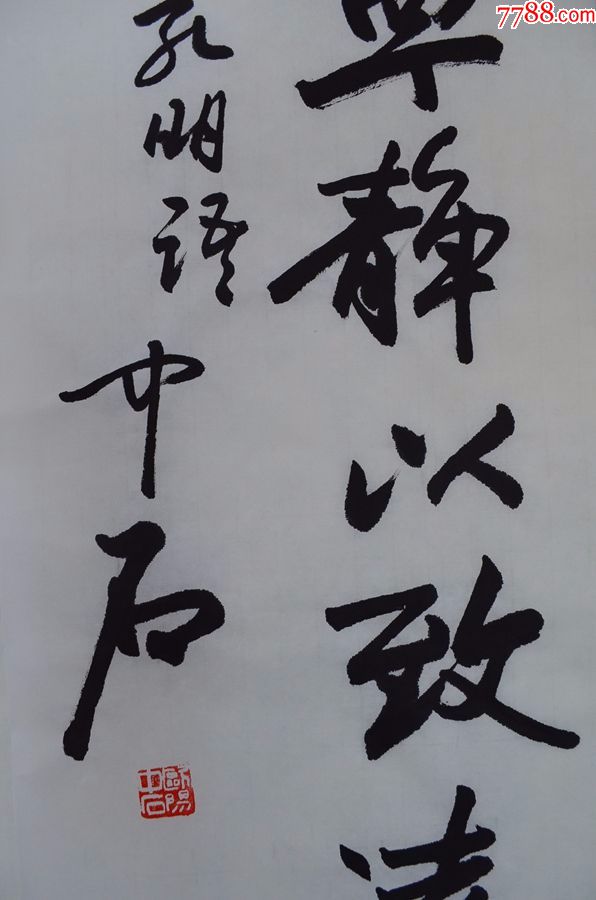 7788.com
寧静以致
孔明語 中石
歐陽中石